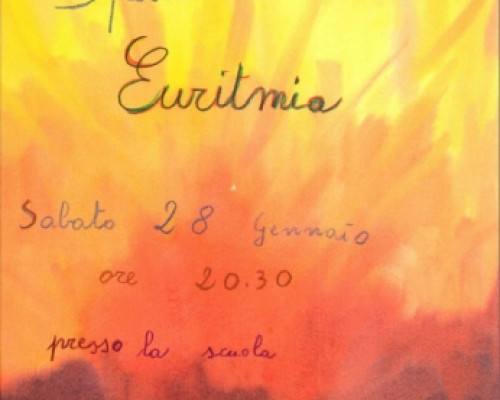 Euritmia
Sabato 28 Gennaio
ore 20.30
presso la scuola